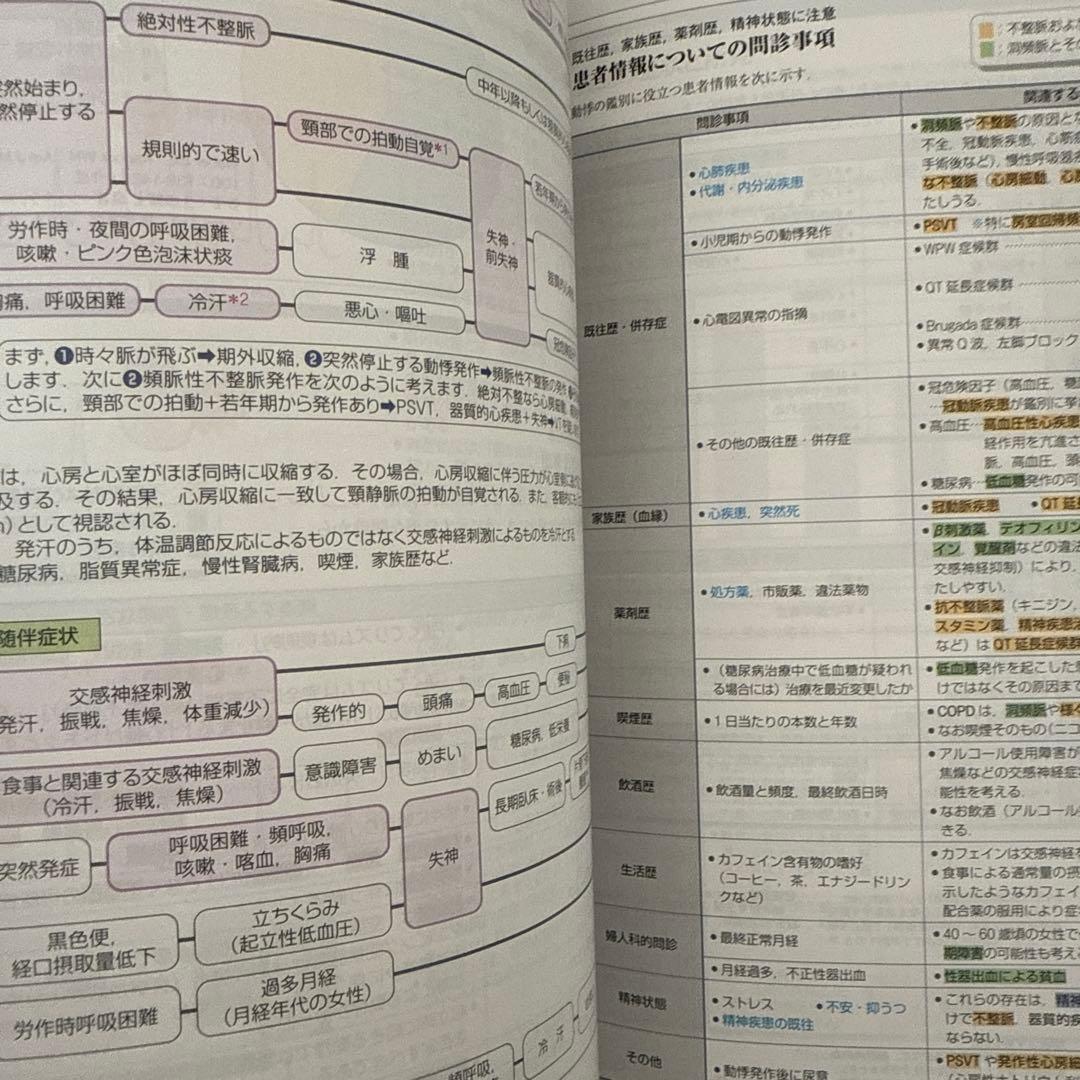 絶対性不整脈
然始まり,
然停止する
規則的で速い
頸部での拍動自覚*1
労作時・夜間の呼吸困難,
咳嗽・ピンク色泡沫状痰
浮 腫
失神・
前失神
痛, 呼吸困難
冷汗*2
悪心・嘔吐
まず, ❶時々脈が飛ぶ➡期外収縮, ❷突然停止する動悸発作➡頻脈性不整脈の発作
します. 次に❷頻脈性不整脈発作を次のように考えます. 絶対不整なら心房細動,
さらに, 頸部での拍動+若年期から発作あり➡PSVT, 器質的心疾患+失神➡VT
は, 心房と心室がほぼ同時に収縮する. その場合, 心房収縮に伴う圧力が
及する. その結果, 心房収縮に一致して頸静脈の拍動が自覚される. また,
n) として視認される.
発汗のうち, 体温調節反応によるものではなく交感神経刺激によるものを冷汗とする
糖尿病, 脂質異常症, 慢性腎臓病, 喫煙, 家族歴など.
随伴症状
交感神経刺激
発汗, 振戦, 焦燥, 体重減少)
発作的
頭痛
高血圧
便秘
下痢
食事と関連する交感神経刺激
(冷汗, 振戦, 焦燥)
意識障害
めまい
糖尿病, 低栄養
突然発症
呼吸困難・頻呼吸,
咳嗽・喀血, 胸痛
失神
長期臥床・術後
黒色便,
経口摂取量低下
立ちくらみ
(起立性低血圧)
労作時呼吸困難
過多月経
(月経年代の女性)
頻呼吸,
冷 汗
既往歴, 家族歴, 薬剤歴, 精神状態に注意
患者情報についての問診事項
動悸の鑑別に役立つ患者情報を次に示す.
：不整脈およ
：洞頻脈とそ
問診事項
関連する
既往歴・併存症
•心肺疾患
•代謝・内分泌疾患
•洞頻脈や不整脈の原因とな
不全, 冠動脈疾患, 心筋
手術後など), 慢性呼吸器
な不整脈 (心房細動, 心
たしうる.
•小児期からの動悸発作
•PSVT ※特に房室回帰頻
•心電図異常の指摘
•WPW 症候群
•QT 延長症候群
•Brugada 症候群
•異常 Q 波, 左脚ブロック
•その他の既往歴・併存症
•冠危険因子 (高血圧, 糖
…冠動脈疾患が鑑別に挙
•高血圧…高血圧性心疾患
経作用を亢進さ
脈, 高血圧, 頭
•糖尿病…低血糖発作の可
家族歴 (血縁)
•心疾患, 突然死
•冠動脈疾患 •QT 延
薬剤歴
•処方薬, 市販薬, 違法薬物
•β刺激薬, テオフィリン
イン, 覚醒剤などの違法
交感神経抑制) により,
たしやすい.
•抗不整脈薬 (キニジン,
スタミン薬, 精神疾患
など) は QT 延長症候群
•(糖尿病治療中で低血糖が疑われ
る場合には) 治療を最近変更したか
•低血糖発作を起こした
けではなくその原因まで
喫煙歴
•1日当たりの本数と年数
•COPD は, 洞頻脈や様々
•なお喫煙そのもの (ニコ
飲酒歴
•飲酒量と頻度, 最終飲酒日時
•アルコール使用障害が
焦燥などの交感神経症
能性を考える.
•なお飲酒 (アルコール
きる.
生活歴
•カフェイン含有物の嗜好
(コーヒー, 茶, エナジードリン
クなど)
•カフェインは交感神経
•食事による通常量の摂
示したようなカフェイ
配合薬の服用により症
婦人科的問診
•最終正常月経
•40～60 歳頃の女性で
期障害の可能性も考え
•月経過多, 不正性器出血
•性器出血による貧血
精神状態
•ストレス •不安・抑うつ
•精神疾患の既往
•これらの存在は, 精神
けで不整脈, 器質的疾
ならない.
その他
•動悸発作後に尿意
•PSVT や発作性心房細